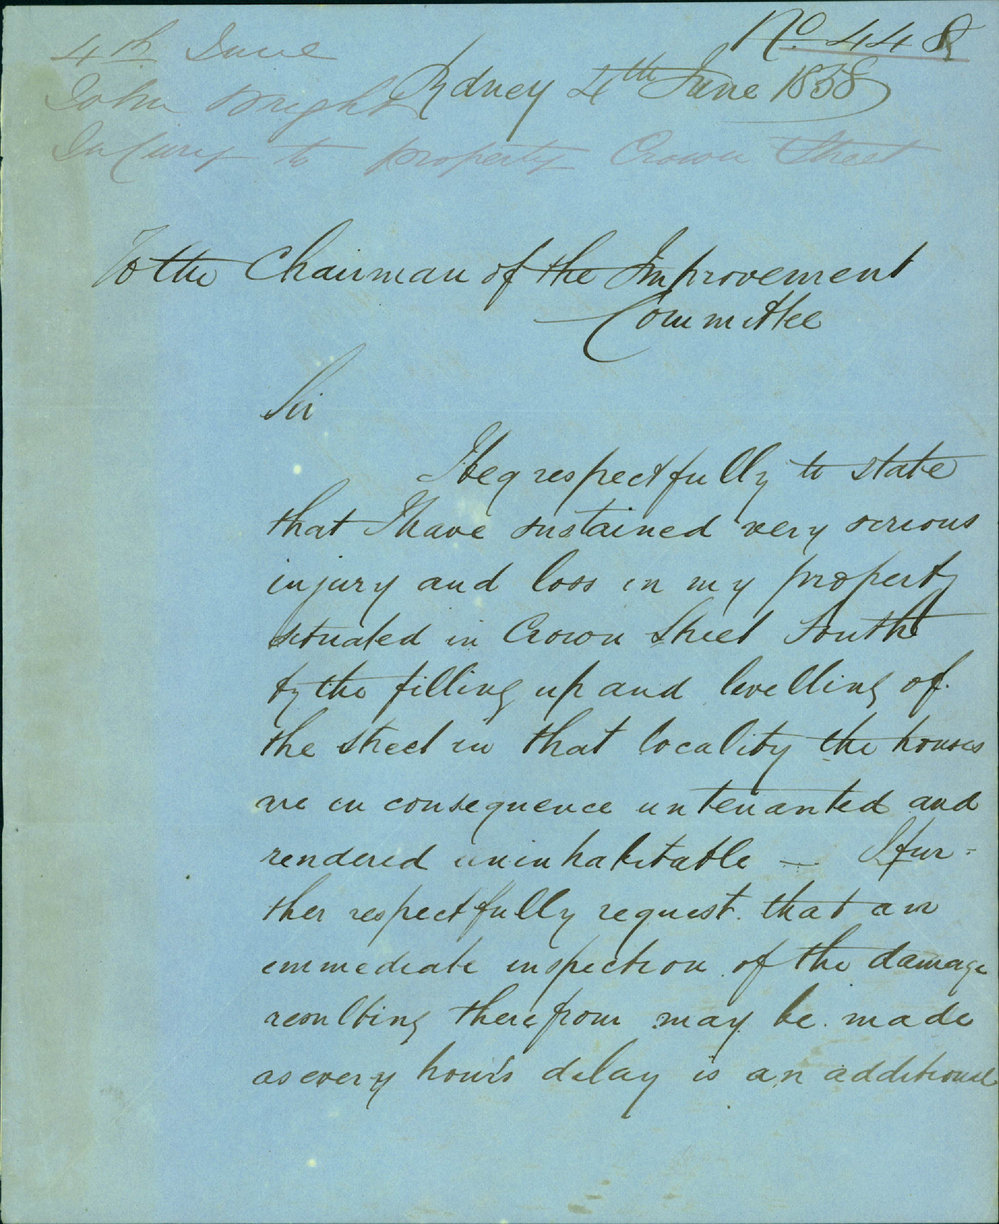 No. 448
4th June
Sydney 4th June 1858
John Wright
Injury to property Crown Street
To the Chairman of the Improvement
Committee
Sir
I beg respectfully to state
that I have sustained very serious
injury and loss in my property
situated in Crown Street South
by the filling up and levelling of
the street in that locality the houses
are in consequence untenanted and
rendered uninhabitable — I fur-
ther respectfully request that an
immediate inspection of the damage
resulting therefrom may be made
as every hour's delay is an additional